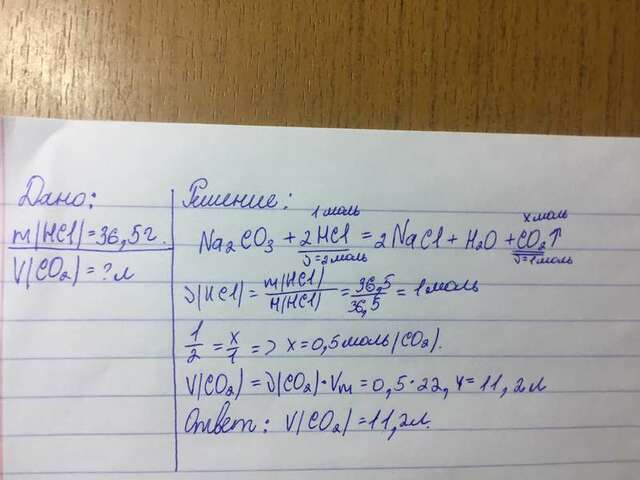 Дано:
m(HCl)=36,5г.
V(CO₂)=?л
Решение:
1 моль
x моль
Na₂CO₃ + 2HCl = 2NaCl + H₂O + CO₂↑
ν=2моль
ν=1моль
ν(HCl) = m(HCl)/M(HCl) = 36,5/36,5 = 1моль
1/2 = x/1 => x=0,5моль(CO₂).
V(CO₂)=ν(CO₂)·Vm=0,5·22,4=11,2л
Ответ: V(CO₂)=11,2л.